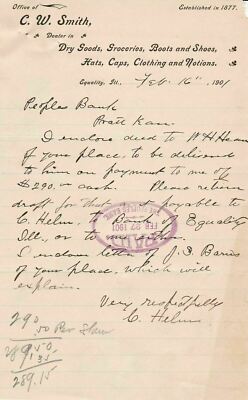 Office of
Established in 1877.
C. W. Smith,
Dealer in
Dry Goods, Groceries, Boots and Shoes,
Hats, Caps, Clothing and Notions.
Equality, Ill., Feb 16" 1901
Peoples Bank
Pratt Kan
I enclose deed to W H
of your place, to be delivered
to him on payment to me of
$290.00 cash. Please return
draft for that amt payable to
C. Helm, to Bank of Equality
Ill, or to me
FEB 22 1901
PAID
I enclose letter of J. S. Barnes
of your place, which will
explain.
Very respectfully
C. Helm
290
.50 Rev Stam
289.50
.35
289.15